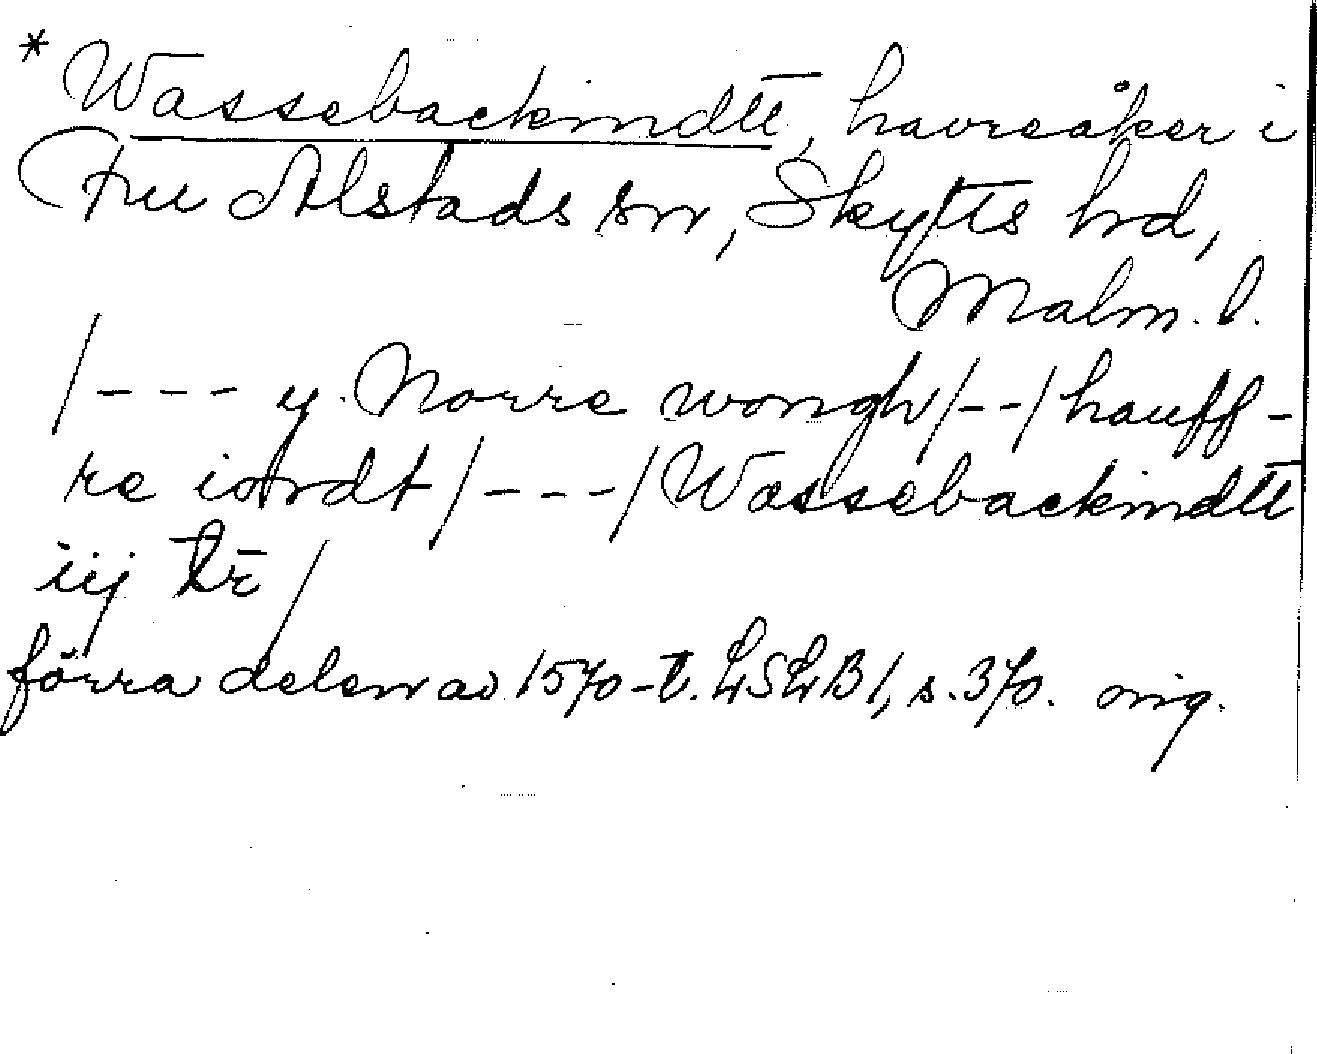 * Wassebackindtt, havreåker i
Fru Alstads sn, Skytts hd,
Malm. l.
/--- y. Norre wongh/--/hauff-
re iordt/---/Wassebackindtt
iij
förra delen av 1570-t. LSLB 1, s. 370. orig.